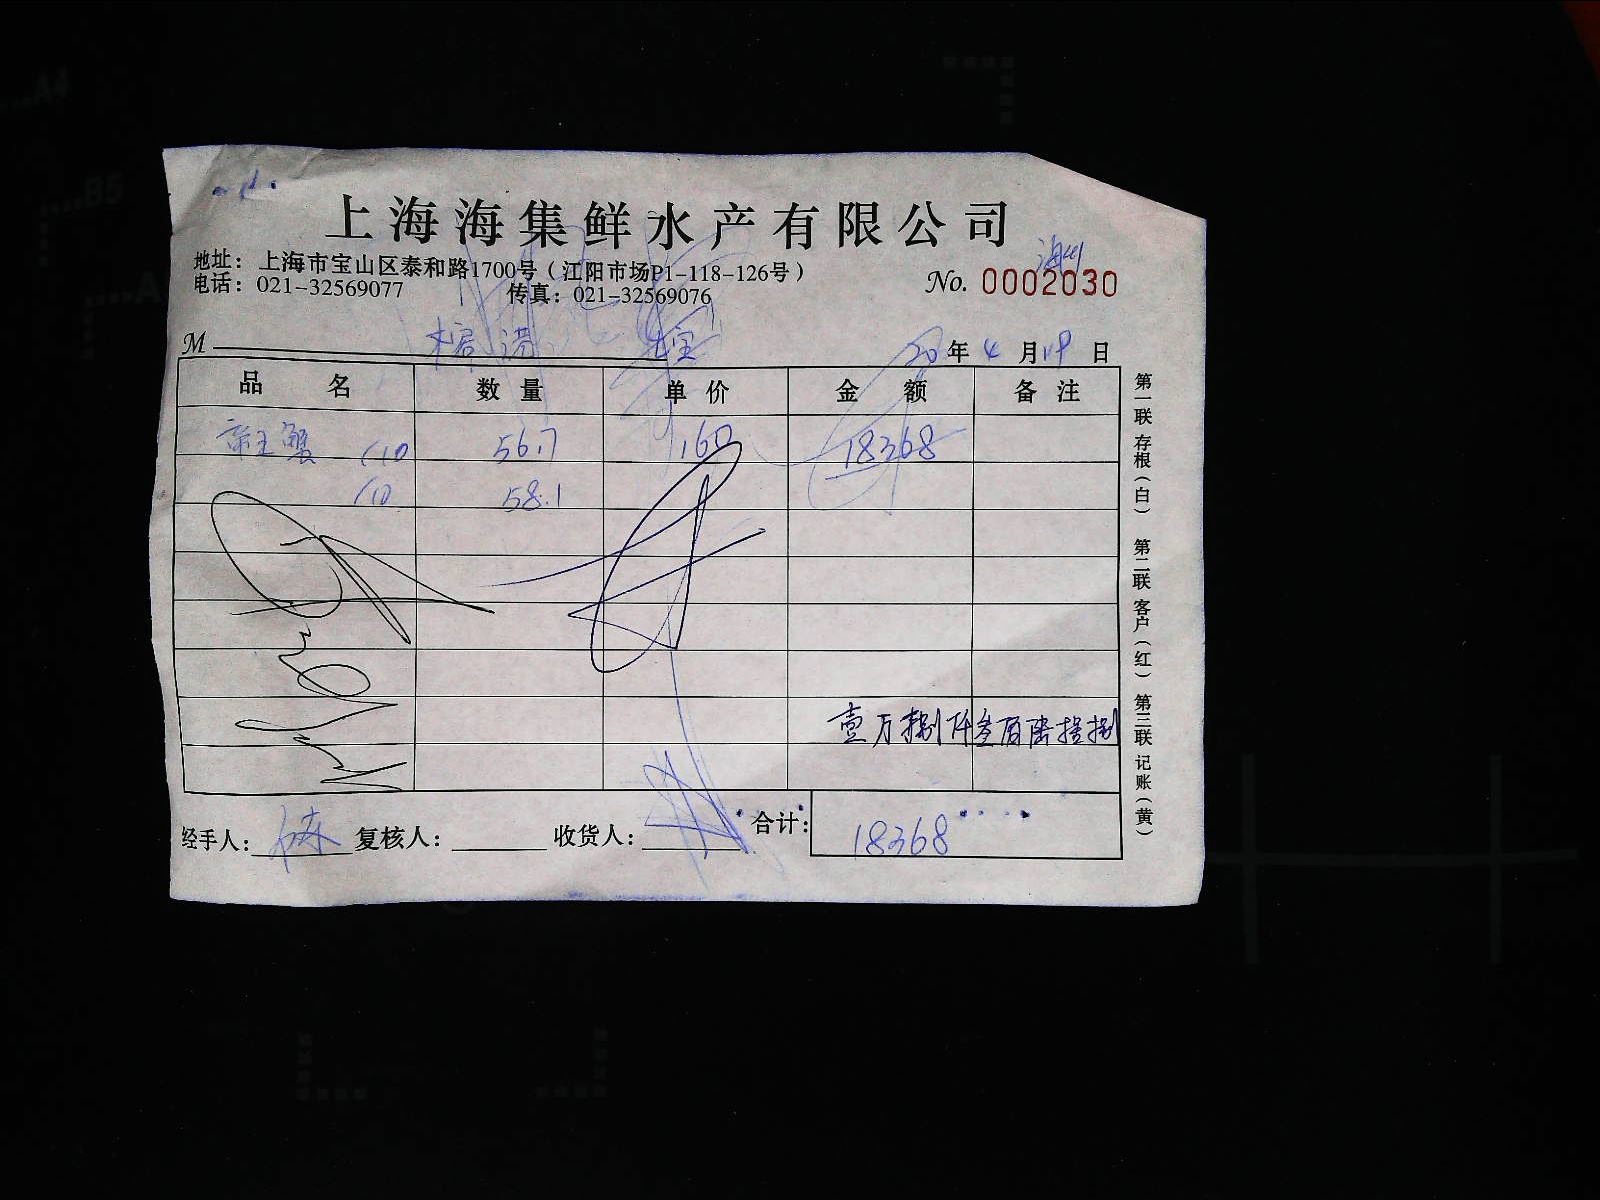 上海海集鲜水产有限公司
地址：上海市宝山区泰和路1700号（江阳市场P1-118-126号）
电话：021-32569077 传真：021-32569076 No. 0002030
M
20年4月19日
品名 数量 单价 金额 备注
帝王蟹 (10 56.7 160 18368
(10 58.1
壹万捌仟叁佰陆拾捌
经手人： 复核人： 收货人： 合计： 18368
第一联 存根（白） 第二联 客户（红） 第三联 记账（黄）